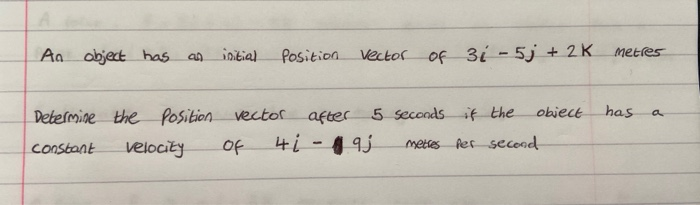 An object has an initial Position vector of 3i - 5j + 2K metres
Determine the Position vector after 5 seconds if the object has a
constant velocity of 4i - 9j metres Per second